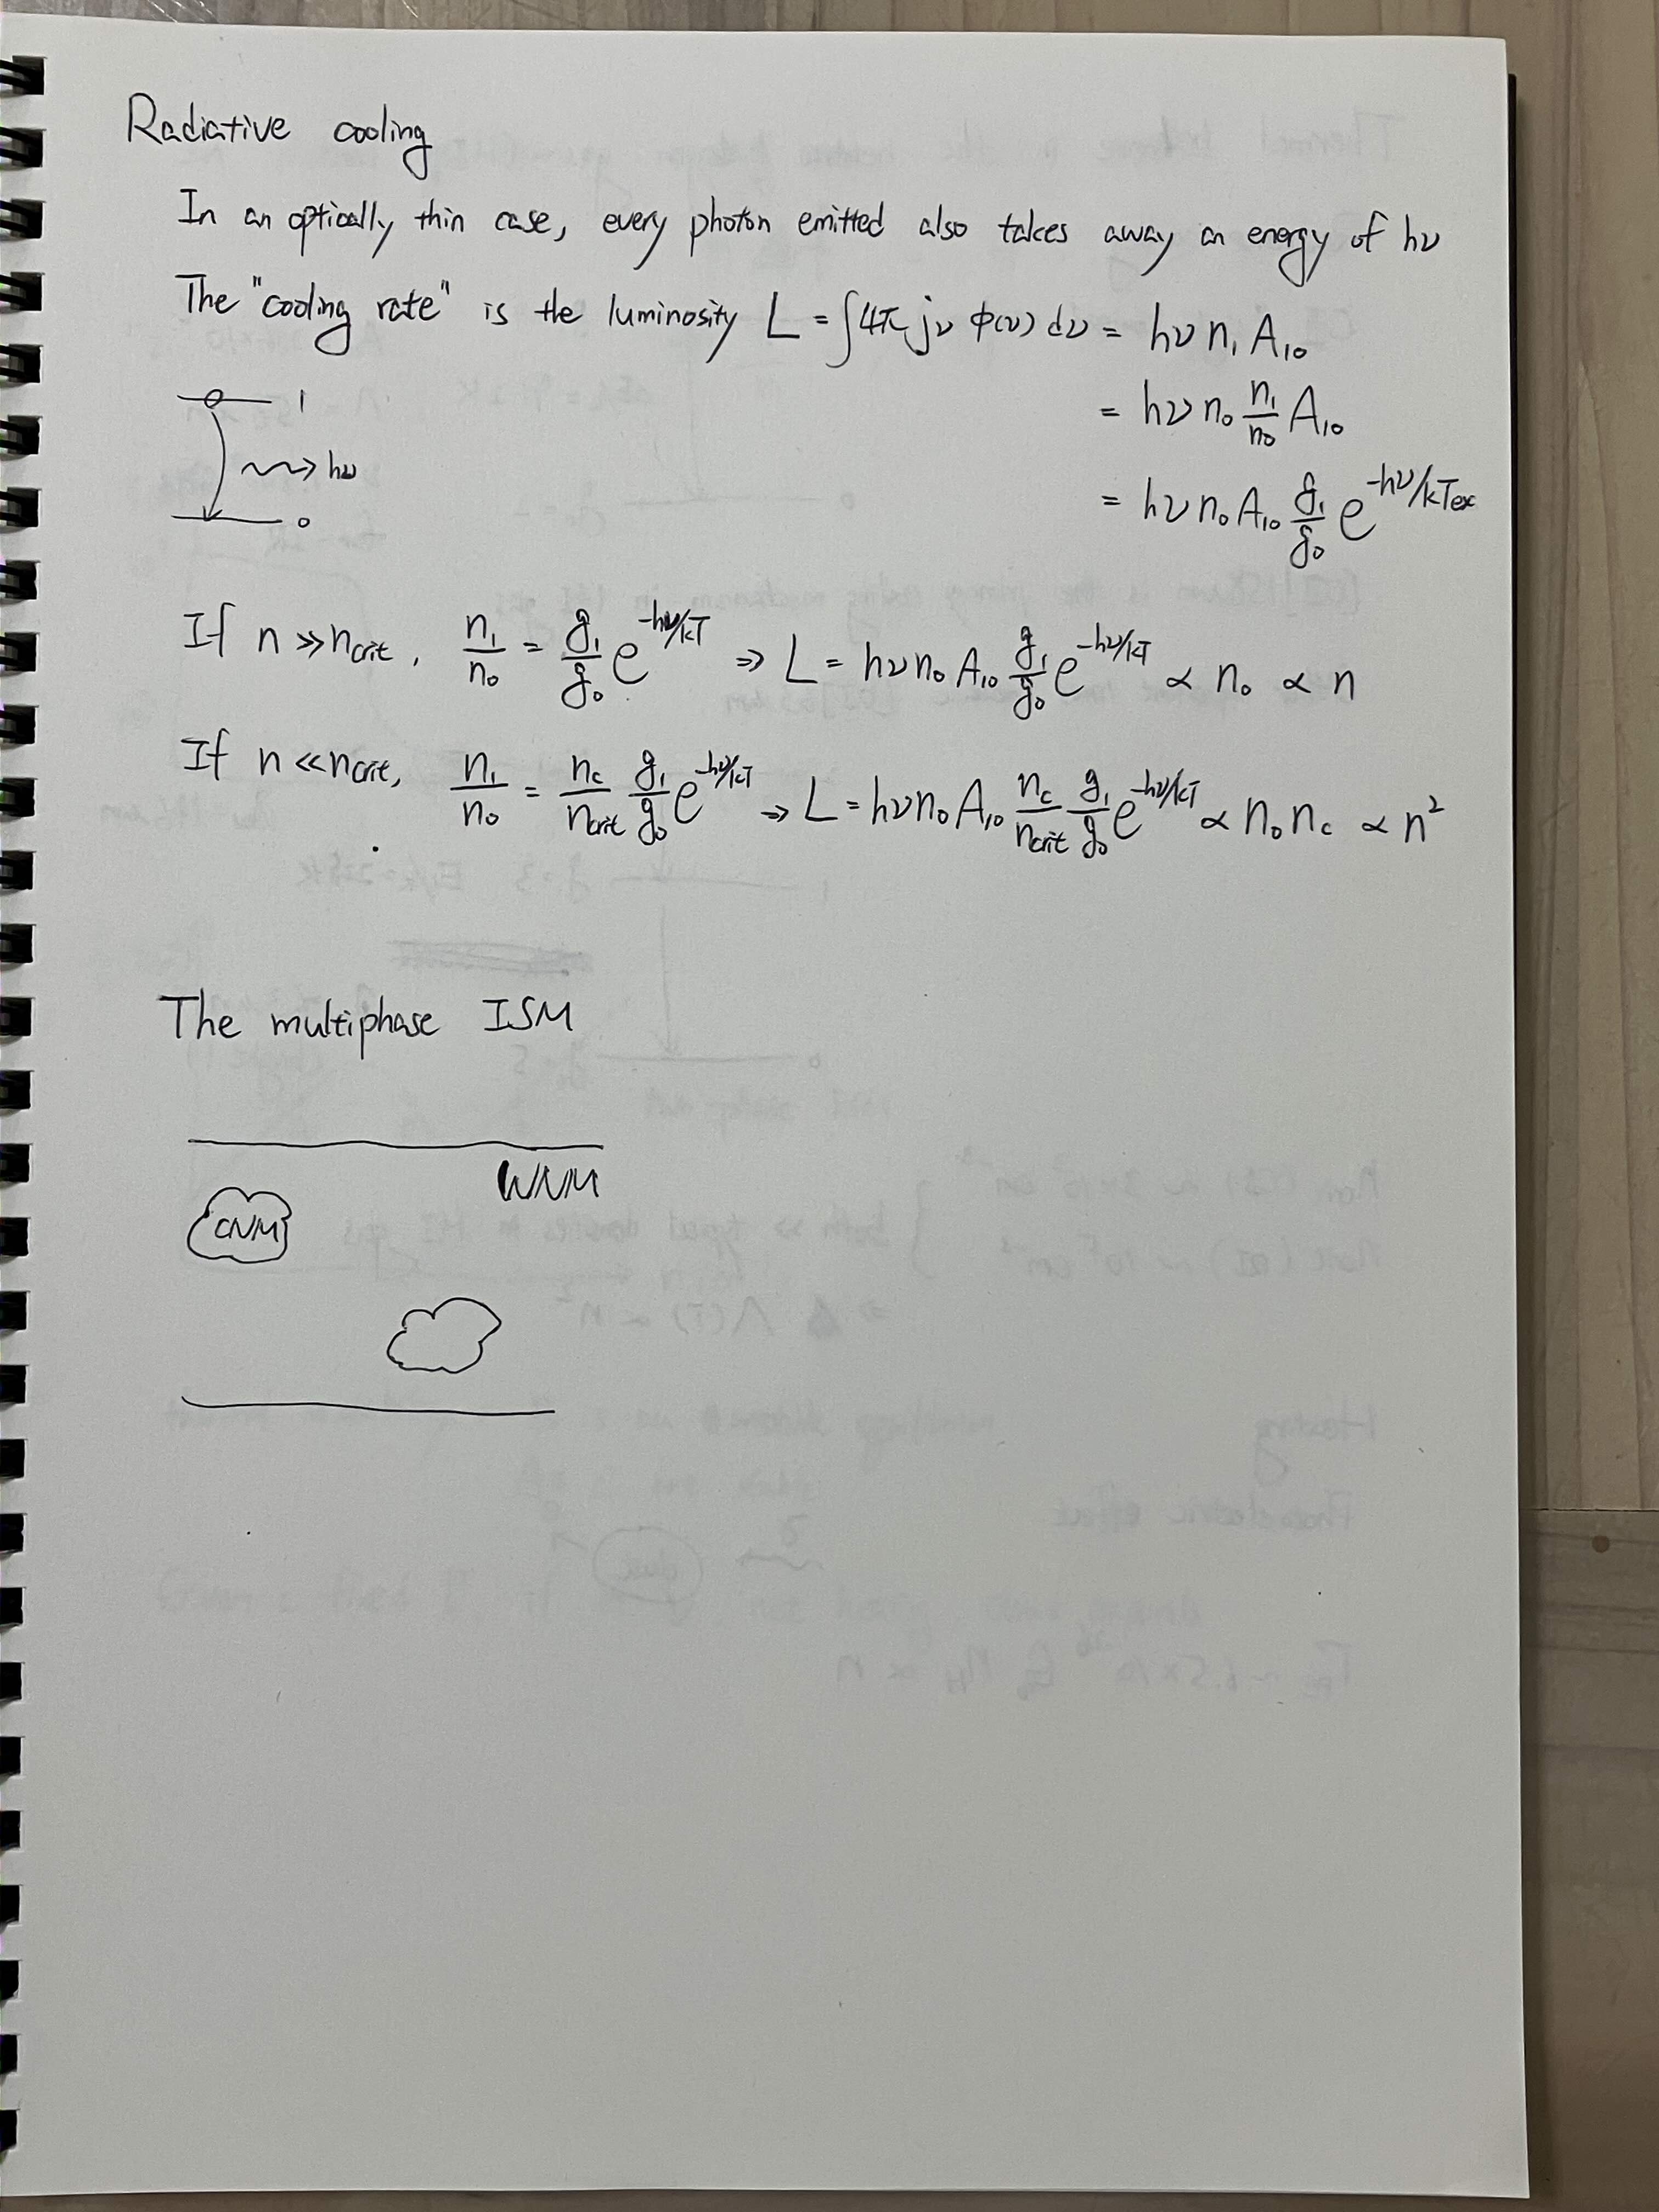 Radiative cooling
In an optically thin case, every photon emitted also takes away an energy of hν
The "cooling rate" is the luminosity L = ∫4π jν φ(ν) dν = hν n₁ A₁₀
= hν n₀ n₁/n₀ A₁₀
= hν n₀ A₁₀ g₁/g₀ e^(-hν/kTex)
1
hν
0
If n ≫ ncrit, n₁/n₀ = g₁/g₀ e^(-hν/kT) ⇒ L = hν n₀ A₁₀ g₁/g₀ e^(-hν/kT) ∝ n₀ ∝ n
If n ≪ ncrit, n₁/n₀ = nc/ncrit g₁/g₀ e^(-hν/kT) ⇒ L = hν n₀ A₁₀ nc/ncrit g₁/g₀ e^(-hν/kT) ∝ n₀ nc ∝ n²
The multiphase ISM
WNM
CNM